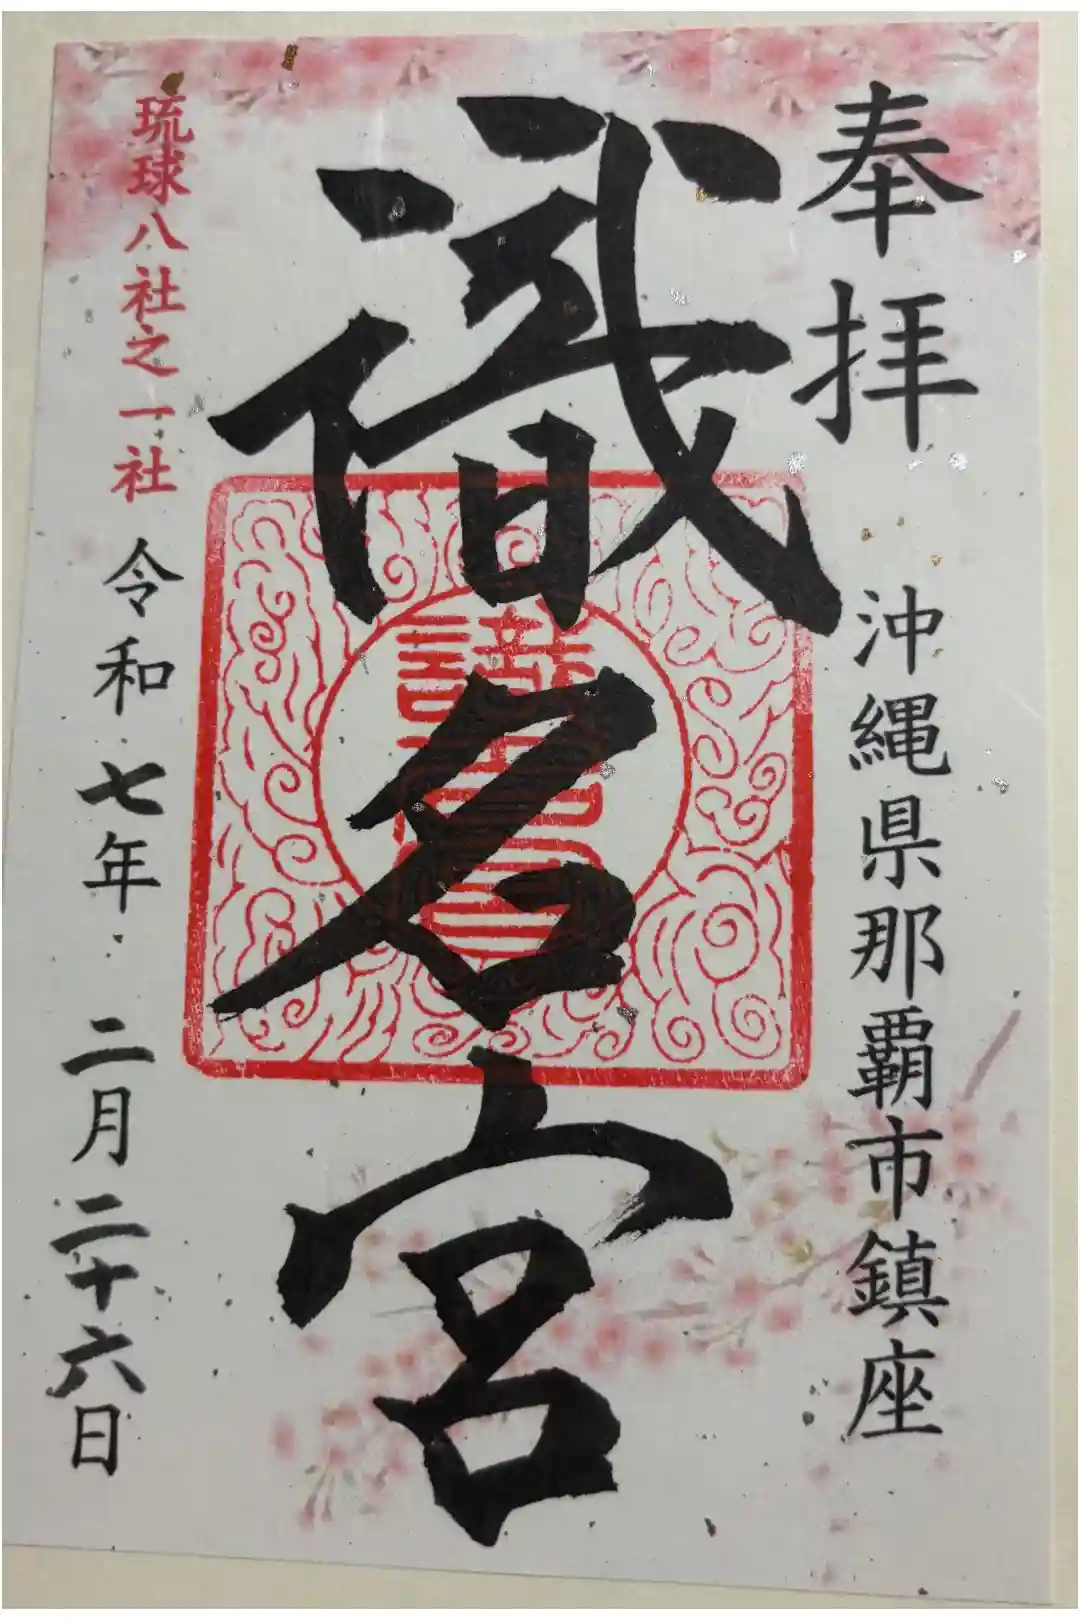 奉拝
沖縄県那覇市鎮座
識名宮
識名宮
琉球八社之一社
令和七年二月二十六日